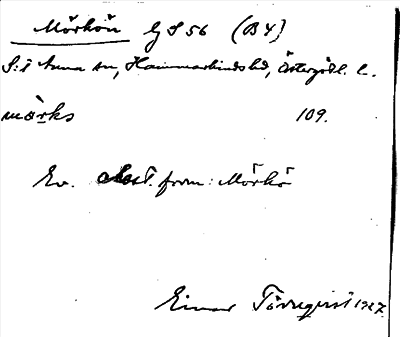 Mörkön GS 56 (B4)
S:t Anna sn, Hammarkinds hd, Östergötl. l.
mörks 109.
Ev. form: Mörkö
Einar Törnqvist 1927.